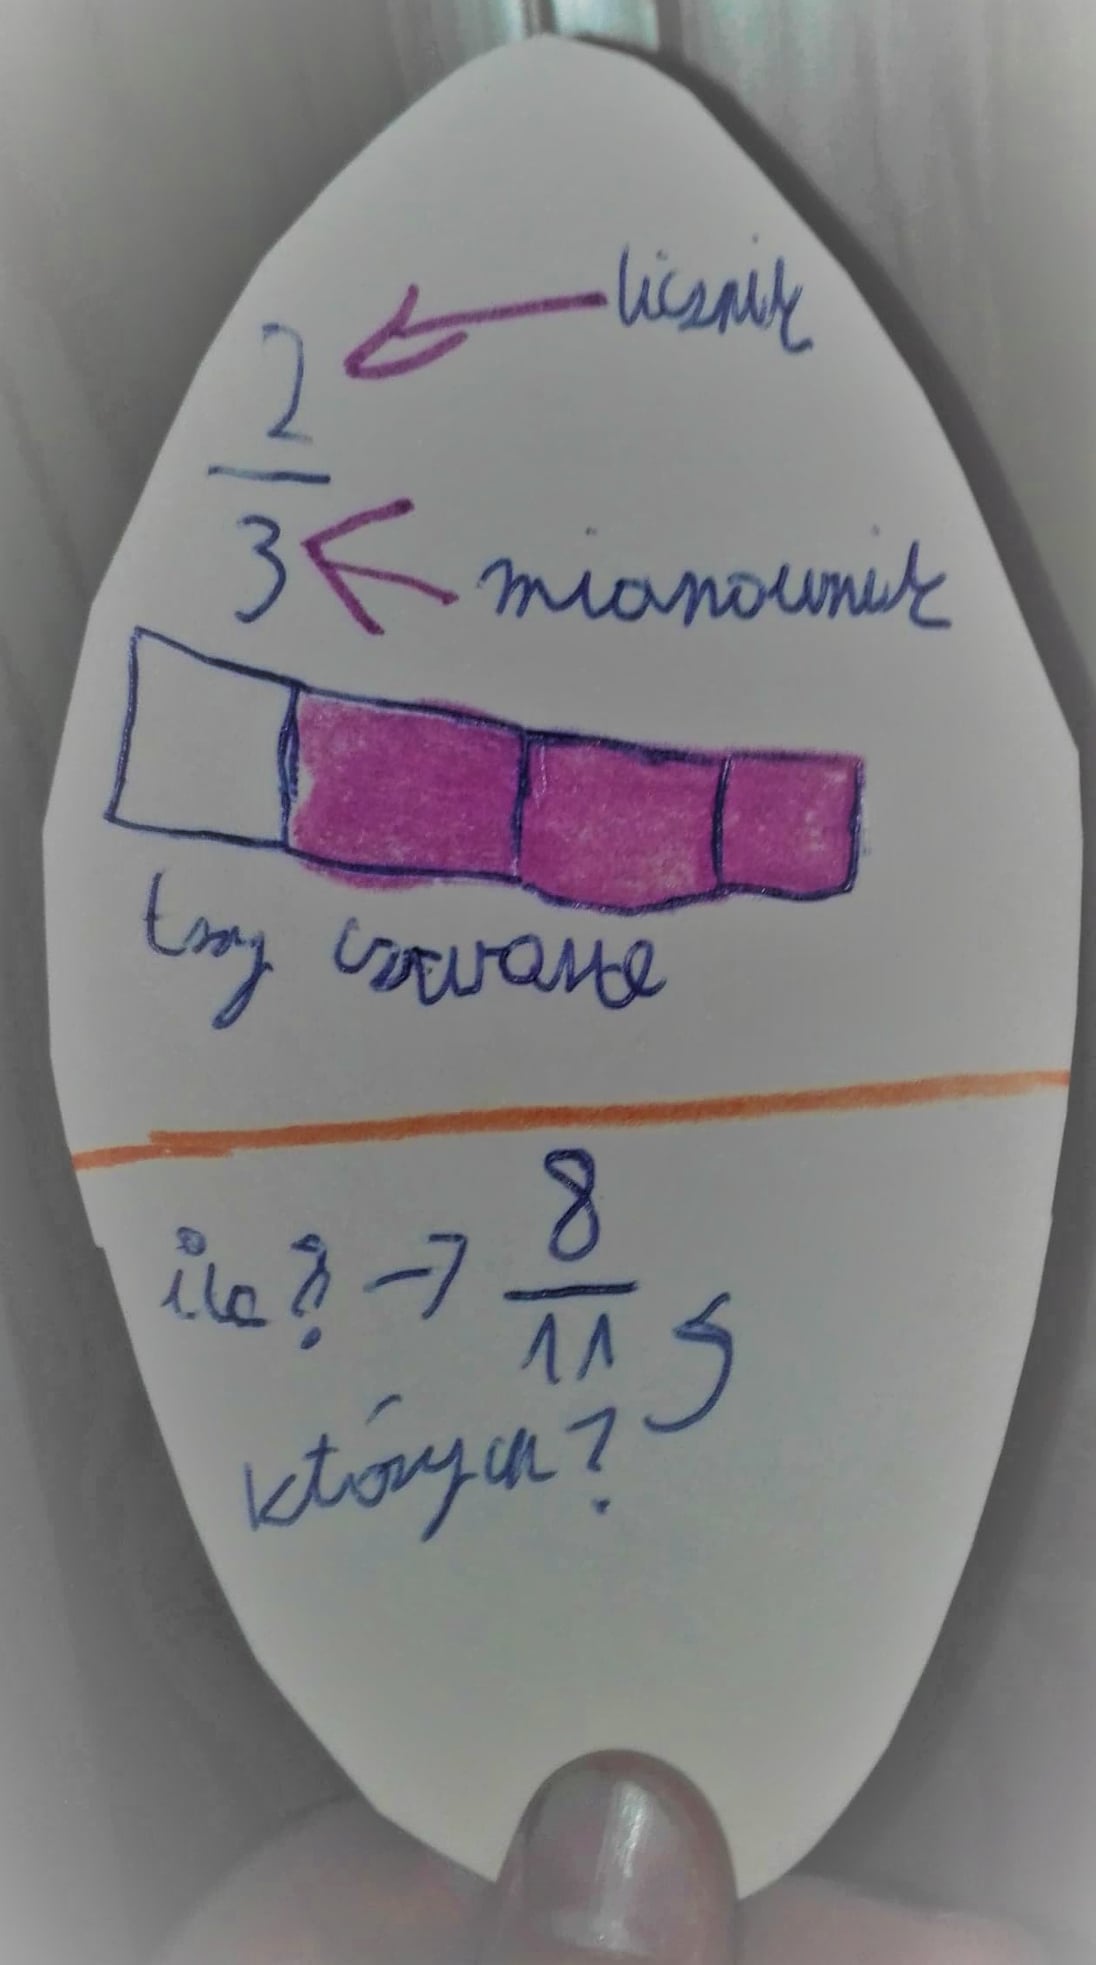 licznik
2
3
mianownik
trzy czwarte
ile? → 8
11
których?